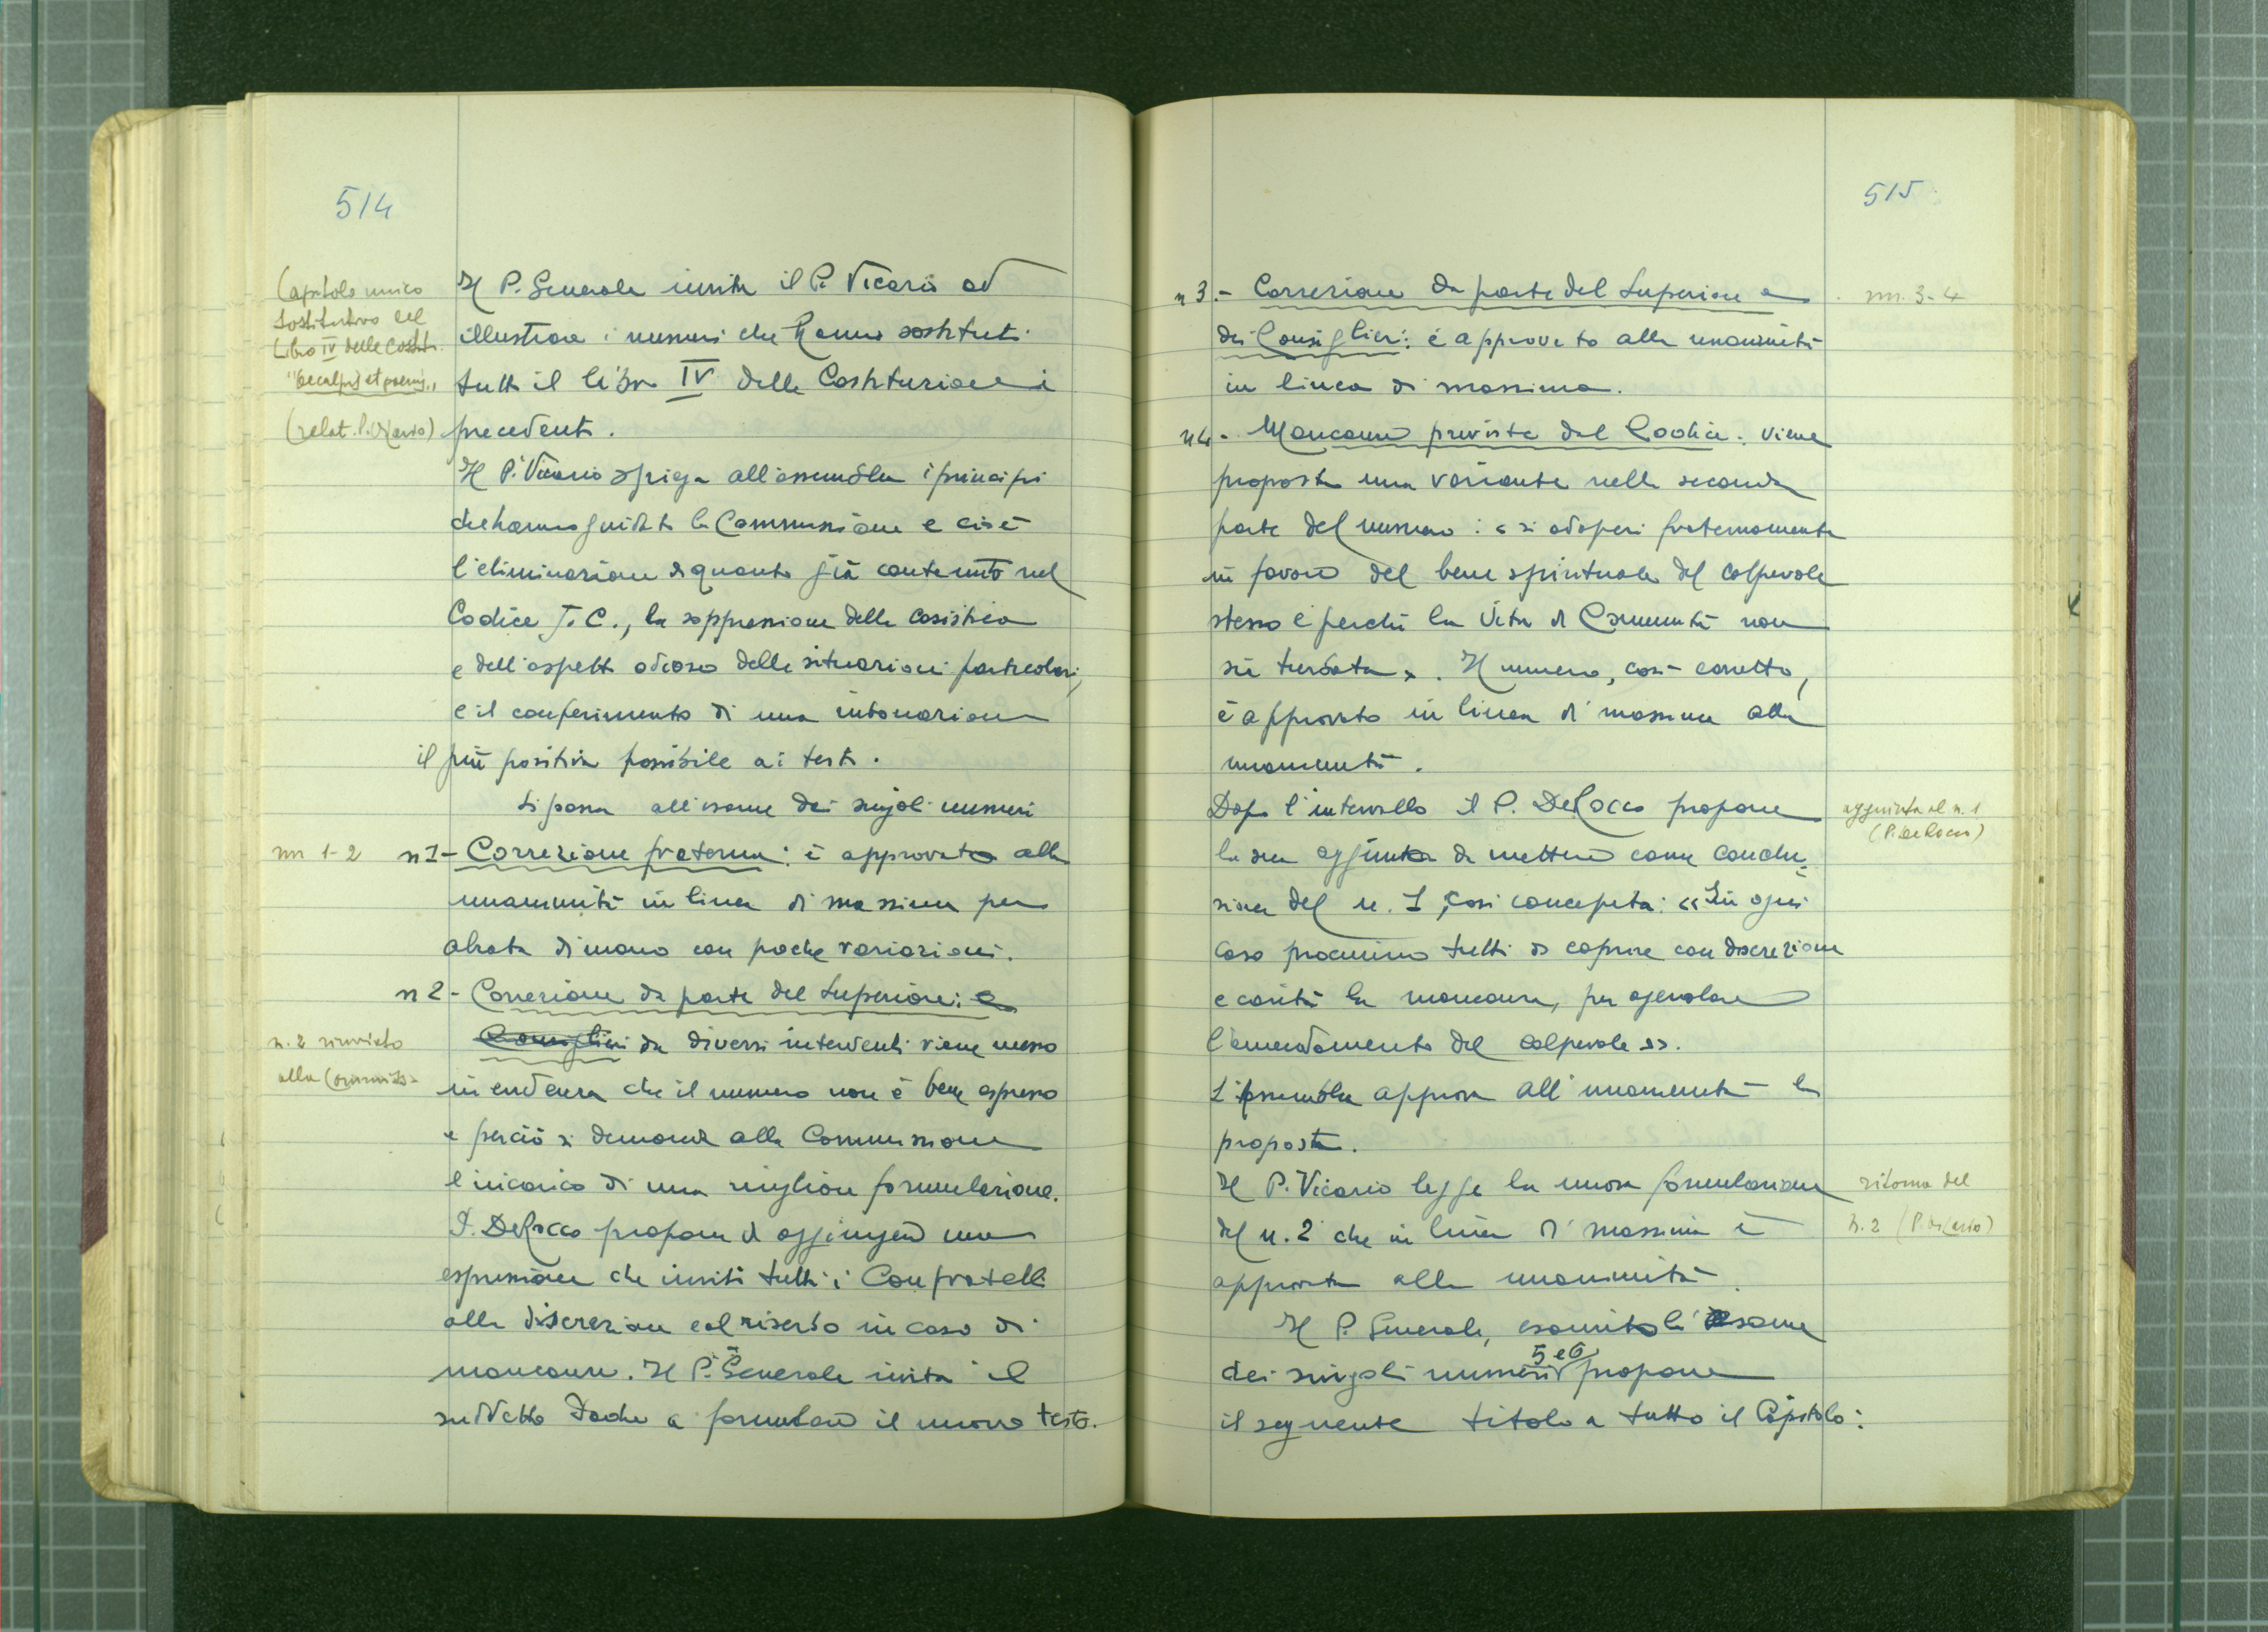 514
Capitolo unico
sostitutivo del
Libro IV delle Costit.
"De culpis et poenis"
(relat. P. Vicario)
Il P. Generale invita il P. Vicario ad
illustrare i numeri che hanno sostituti
tutto il libro IV delle Costituzioni
precedenti.
Il P. Vicario spiega all'assemblea i principi
che hanno guidato la Commissione e cioè
l'eliminazione di quanto già contenuto nel
Codice J. C., la soppressione della casistica
e dell'aspetto odioso delle situazioni particolari,
e il conferimento di una intonazione
il più positiva possibile ai testi.
Si passa all'esame dei singoli numeri
nn 1-2
n 1 - Correzione fraterna: è approvato alla
unanimità in linea di massima per
alzata di mano con poche variazioni.
n 2 - Correzione da parte del Superiore: e
n. 2 rinviato
alla Commiss.
Consiglieri da diversi interventi viene messo
in evidenza che il numero non è bene espresso
e perciò si demanda alla Commissione
l'incarico di una miglior formulazione.
P. DeRocco propone di aggiungere una
espressione che inviti tutti i Confratelli
alla discrezione e al riserbo in caso di
mancanze. Il P. Generale invita il
suddetto Padre a formulare il nuovo testo.
515
n 3. - Correzione da parte del Superiore e
nn. 3-4
dei Consiglieri: è approvato alla unanimità
in linea di massima.
n 4 - Mancanze previste dal Codice: viene
proposta una variante nella seconda
parte del numero: « si adoperi fraternamente
in favore del bene spirituale del colpevole
stesso e perché la vita di Comunità non
sia turbata ». Il numero, così corretto,
è approvato in linea di massima alla
unanimità.
Dopo l'intervallo il P. DeRocco propone
aggiunta al n. 1
(P. DeRocco)
la sua aggiunta da mettere come conclu-
sione del n. 1, così concepita: « In ogni
caso procurino tutti di coprire con discrezione
e carità la mancanza, per agevolare
l'emendamento del colpevole ».
L'Assemblea approva all'unanimità la
proposta.
Il P. Vicario legge la nuova formulazione
ritorno del
n. 2 (P. Vicario)
del n. 2 che in linea di massima è
approvata alla unanimità.
Il P. Generale, esaurito l'esame
dei singoli numeri 5 e 6 propone
il seguente titolo a tutto il Capitolo: